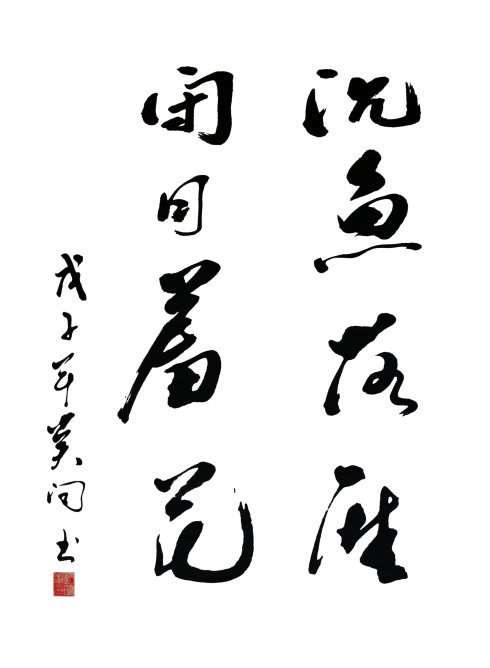 沉鱼落雁
闭月羞花
戊子年莫问书